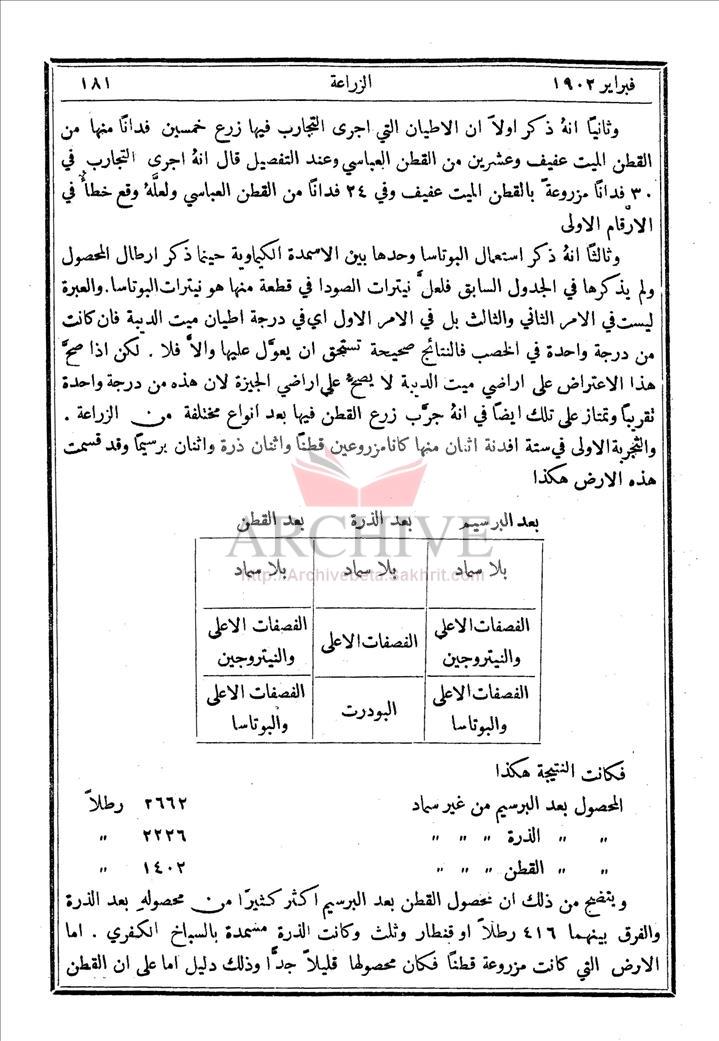 فبراير ١٩٠٢ الزراعة ١٨١
وثانيًا انهُ ذكر اولاً ان الاطيان التي اجرى التجارب فيها زرع خمسين فدانًا منها من
القطن الميت عفيف وعشرين من القطن العباسي وعند التفصيل قال انهُ اجرى التجارب في
٣٠ فدانًا مزروعةً بالقطن الميت عفيف وفي ٢٤ فدانًا من القطن العباسي ولعلَّهُ وقع خطأٌ في
الارقام الاولى
وثالثًا انهُ ذكر استعمال البوتاسا وحدها بين الاسمدة الكياوية حينما ذكر ارطال المحصول
ولم يذكرها في الجدول السابق فلعلَّ نيترات الصودا في قطعة منها هو نيترات البوتاسا. والعبرة
ليست في الامر الثاني والثالث بل في الامر الاول اي في درجة اطيان ميت الديبة فان كانت
من درجة واحدة في الخصب فالنتائج صحيحة تستحق ان يعوَّل عليها والاَّ فلا . لكن اذا صحَّ
هذا الاعتراض على اراضي ميت الديبة لا يصحُّ على اراضي الجيزة لان هذه من درجة واحدة
تقريبًا وتمتاز على تلك ايضًا في انهُ جرَّب زرع القطن فيها بعد انواع مختلفة من الزراعة .
والتجربة الاولى في ستة افدنة اثنان منها كانا مزروعين قطنًا واثنان ذرة واثنان برسيمًا وقد قسمت
هذه الارض هكذا
ARCHIVE
http://Archivebeta.Sakhrit.com
بعد البرسيم بعد الذرة بعد القطن
بلا سماد بلا سماد بلا سماد
الفصفات الاعلى والنيتروجين الفصفات الاعلى الفصفات الاعلى والنيتروجين
الفصفات الاعلى والبوتاسا البودرت الفصفات الاعلى والبوتاسا
فكانت النتيجة هكذا
المحصول بعد البرسيم من غير سماد ٢٦٦٢ رطلاً
" " الذرة " " " ٢٢٢٦ "
" " القطن " " " ١٤٠٢ "
ويتضح من ذلك ان محصول القطن بعد البرسيم اكثر كثيرًا من محصوله بعد الذرة
والفرق بينهما ٤١٦ رطلاً او قنطار وثلث وكانت الذرة مسمدة بالسباخ الكفري . اما
الارض التي كانت مزروعة قطنًا فكان محصولها قليلاً جدًّا وذلك دليل اما على ان القطن